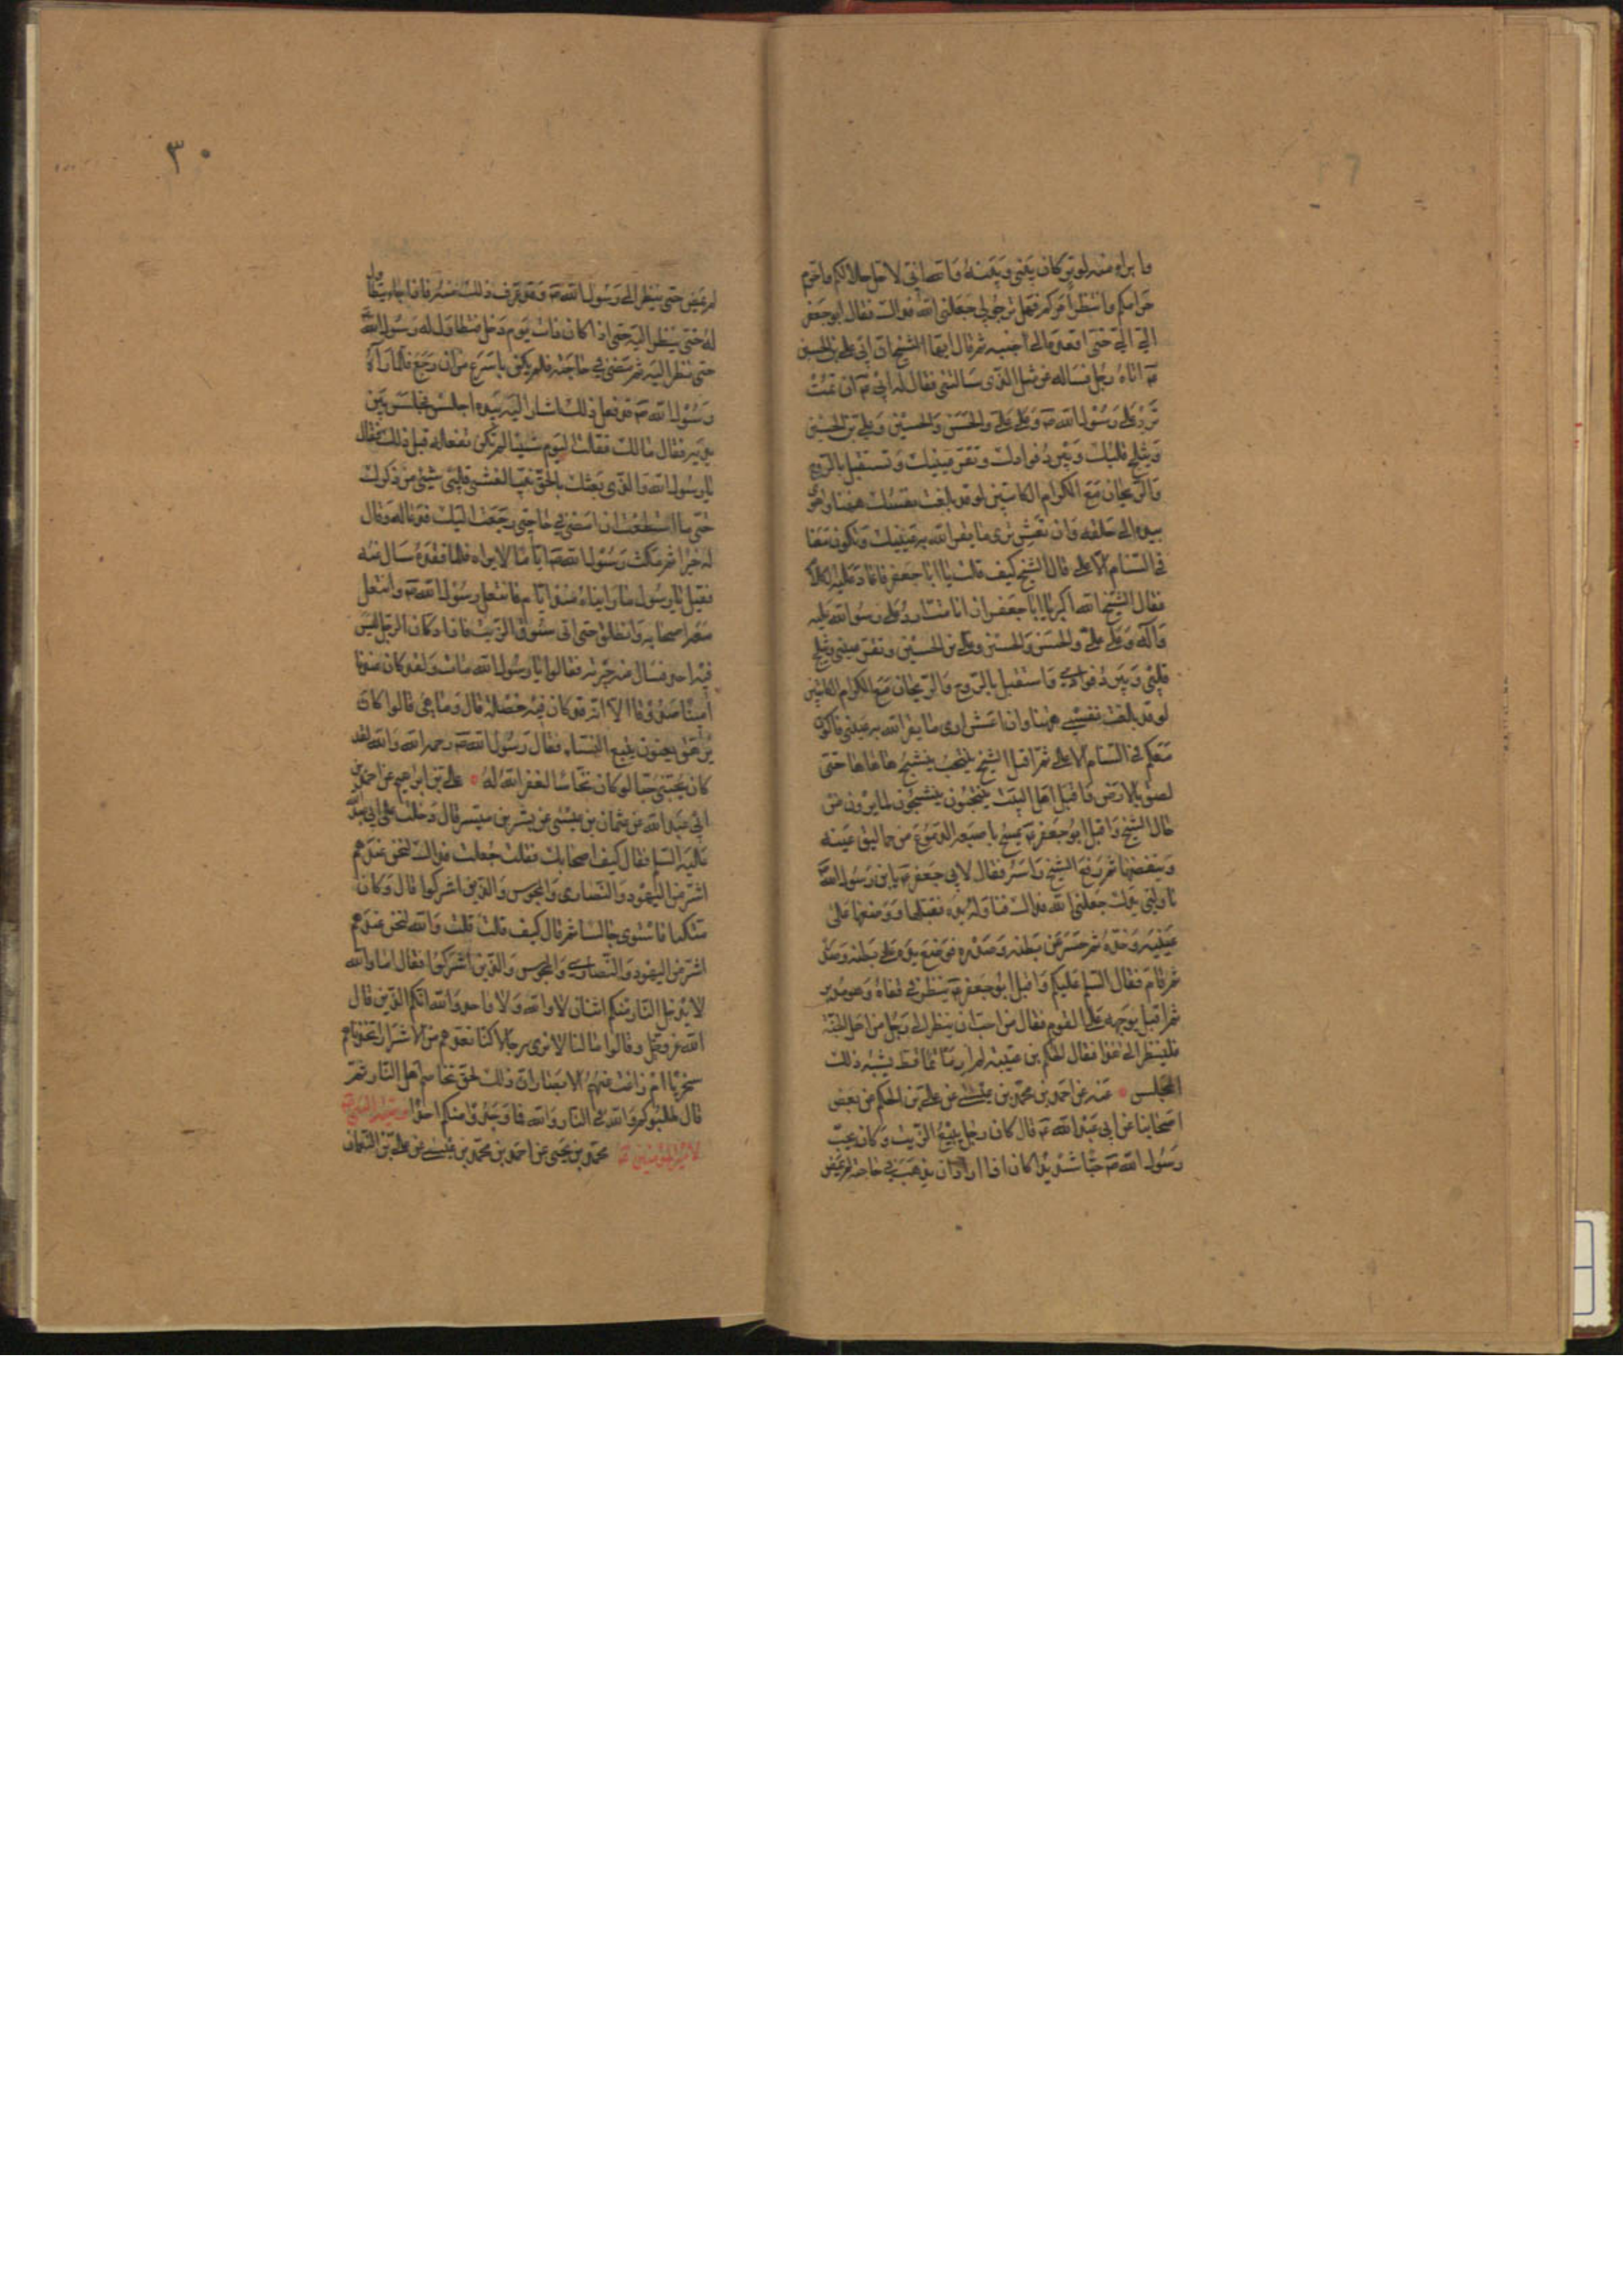 وابراء منه لوتر كان بيني وبينه والله اني لاحل حلالكم واحرم
حرامكم وانتظر امركم فهل ترجو لي جعلني الله فداك فقال ابو جعفر
الي الي حتى اقعده الى جنبه ثم قال ايها الشيخ ان ابي علي بن الحسين
ع اتاه رجل فساله عن مثل الذي سالتني عنه فقال له ابي ع ان تمت
ترد على رسول الله ص وعلى علي والحسن والحسين وعلي بن الحسين
ويثلج قلبك ويبرد فوادك وتقر عينك وتستقبل بالروح
والريحان مع الكرام الكاتبين لو قد بلغت نفسك ههنا واهوى
بيده الى حلقه وان تعش ترى ما يقر الله به عينك وتكون معنا
في السنام الاعلى قال الشيخ كيف قلت يا ابا جعفر فاعاد عليه الكلام
فقال الشيخ الله اكبر يا ابا جعفر ان انا مت ارد على رسول الله عليه
وآله وعلى علي والحسن والحسين وعلي بن الحسين وتقر عيني ويثلج
قلبي ويبرد فوادي واستقبل بالروح والريحان مع الكرام الكاتبين
لو قد بلغت نفسي ههنا وان اعش ارى ما يقر الله به عيني فاكون
معكم في السنام الاعلى ثم اقبل الشيخ ينتحب ينشج هاهاها حتى
لصق بالارض واقبل اهل البيت ينتحبون ينشجون لما يرون من
حال الشيخ واقبل ابو جعفر ع يمسح باصبعه الدموع من حماليق عينيه
وينفضها ثم رفع الشيخ راسه فقال لابي جعفر ع يابن رسول الله
ناولني يدك جعلني الله فداك فناوله يده فقبلها ووضعها على
عينيه وخده ثم حسر عن بطنه وصدره فوضع يده على بطنه وصدره
ثم قام فقال السلم عليكم واقبل ابو جعفر ع ينظر في قفاه وهو مدبر
ثم اقبل بوجهه على القوم فقال من احب ان ينظر الى رجل من اهل الجنة
فلينظر الى هذا فقال الحكم بن عتيبة لم ار ماتما قط يشبه ذلك
المجلس • عنه عن احمد بن محمد بن عيسى عن علي بن الحكم عن بعض
اصحابنا عن ابي عبد الله ع قال كان رجل يبيع الزيت وكان يحب
رسول الله ص حبا شديدا كان اذا اراد ان يذهب في حاجته لم يمض
٣٠
لم يمض حتى ينظر الى رسول الله ص وقد عرف ذلك منه فاذا جاء تطاول
له حتى ينظر اليه حتى اذا كان ذات يوم دخل فتطاول له رسول الله
حتى نظر اليه ثم مضى في حاجته فلم يكن باسرع من ان رجع فلما رآه
رسول الله ص قد فعل ذلك اشار اليه بيده اجلس فجلس بين
يديه فقال مالك فعلت اليوم شيئا لم تكن تفعله قبل ذلك فقال
يا رسول الله والذي بعثك بالحق نبيا لغشي قلبي شيئ من ذكرك
حتى ما استطعت ان امضي في حاجتي رجعت اليك فدعا له وقال
له خيرا ثم مكث رسول الله ص اياما لا يراه فلما فقده سال عنه
فقيل يا رسول ما رايناه منذ ايام فانتعل رسول الله ص وانتعل
معه اصحابه وانطلق حتى اتى سوق الزيت فاذا دكان الرجل ليس
فيه احد فسال عنه جيرته فقالوا يا رسول الله مات ولقد كان عندنا
امينا صدوقا الا انه قد كان فيه خصلة قال وما هي قالوا كان
يرهق يعنون يتبع النساء فقال رسول الله ص رحمه الله والله لقد
كان يحبني حبا لو كان نخاسا لغفر الله له • علي بن ابراهيم عن احمد بن
ابي عبد الله عن عثمان بن عيسى عن ميسر قال دخلت على ابي عبد الله
عليه السلم فقال كيف اصحابك فقلت جعلت فداك لنحن عندهم
اشر من اليهود والنصارى والمجوس والذين اشركوا قال وكان
متكئا فاستوى جالسا ثم قال كيف قلت قلت والله لنحن عندهم
اشر من اليهود والنصارى والمجوس والذين اشركوا فقال اما والله
لا يدخل النار منكم اثنان لا والله ولا واحد والله انكم الذين قال
الله عز وجل وقالوا ما لنا لا نرى رجالا كنا نعدهم من الاشرار اتخذناهم
سخريا ام زاغت عنهم الابصار ان ذلك لحق تخاصم اهل النار ثم
قال طلبوكم والله في النار والله فما وجدوا منكم احدا وصية النبي ص
لامير المؤمنين ع محمد بن يحيى عن احمد بن محمد بن عيسى عن علي بن النعمان